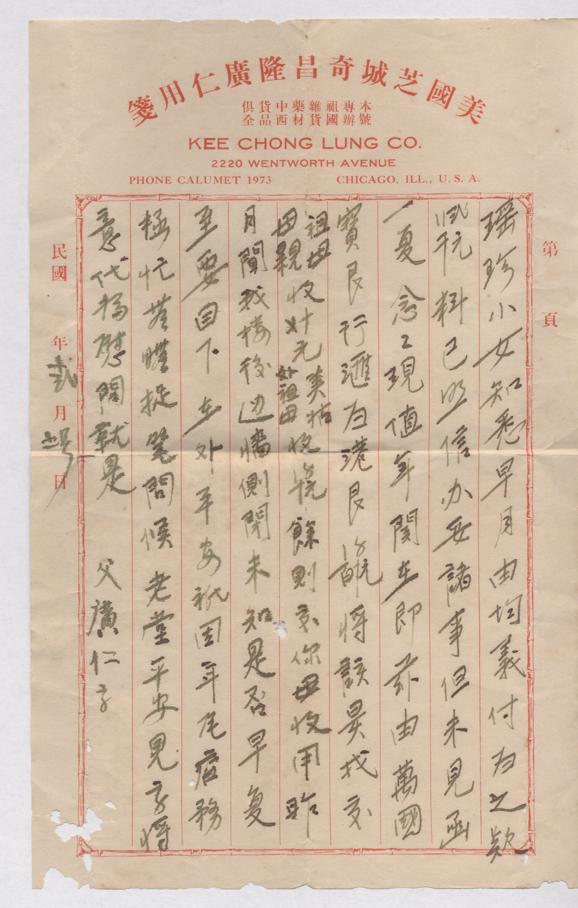 美國芝城奇昌隆廣仁用箋
本號專辦祖國雜貨藥材中西貨品俱全
KEE CHONG LUNG CO.
2220 WENTWORTH AVENUE
PHONE CALUMET 1973
CHICAGO, ILL., U. S. A.
第 頁
瑤珍小女知悉早月由均義付之款
料已照信办妥諸事但未見函
一夏念之現值年関在即茲由萬國
寶艮行滙港艮將該昃找交
祖母母親收元外祖母收餘則交你母收用昨
月聞我樓後边墻側閉未知是否早复
至要目下在外平安祇因年尾店務
極忙苦瞠捉筆問候老堂平安見字將
意代福慰問就是
父廣仁字
民國 年 月 日